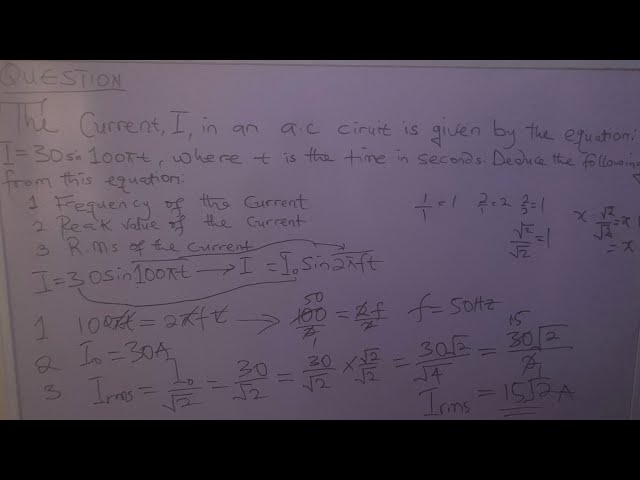 QUESTION
The Current, I, in an a.c ciruit is given by the equation:
I = 30sin 100πt, where t is the time in seconds. Deduce the following
from this equation:
1 Frequency of the Current
2 Peak value of the Current
3 R.m.s of the Current
1/1 = 1 2/1 = 2 2/2 = 1
√2/√2 = 1
x √2/√2 = x
= x
I = 30sin100πt → I = I₀ sin2πft
1 100πt = 2πft → 100/2 = 2f/2 f = 50Hz
50
1
2 I₀ = 30A
3 Irms = I₀/√2 = 30/√2 = 30/√2 × √2/√2 = 30√2/√4 = 30√2/2
15
1
Irms = 15√2A